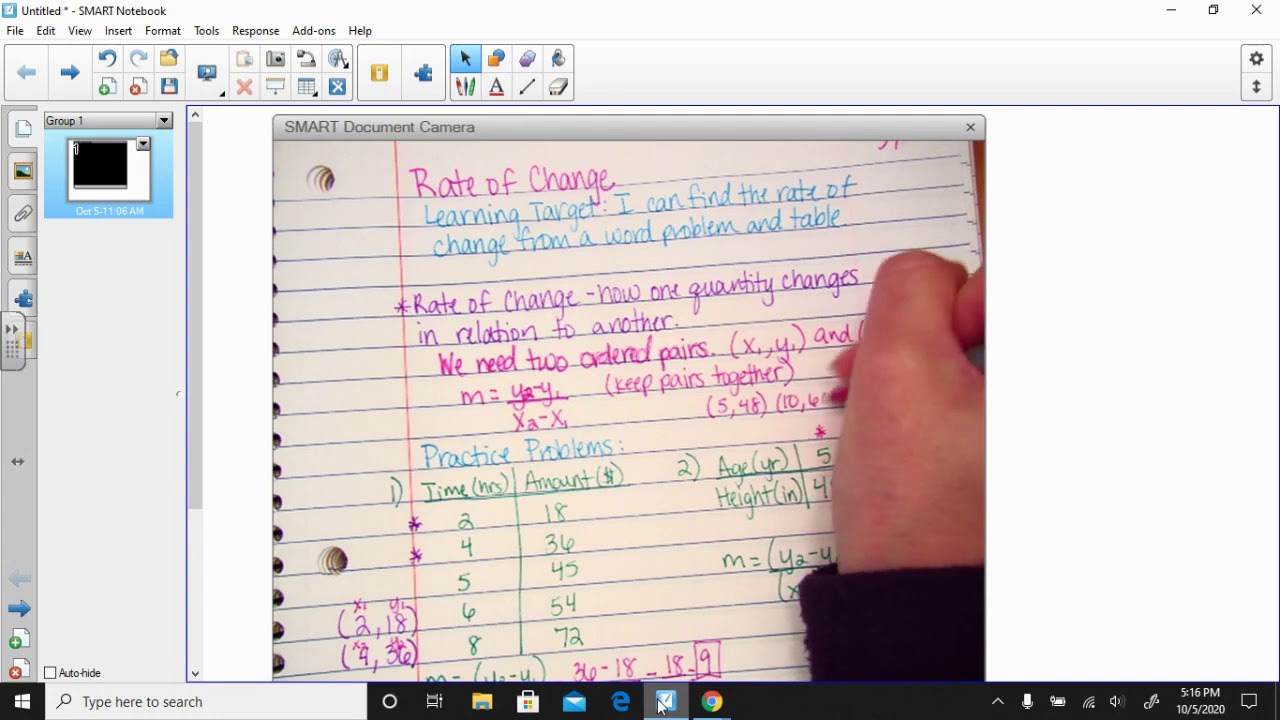 Untitled * - SMART Notebook
File Edit View Insert Format Tools Response Add-ons Help
Group 1
1
Oct 5-11:06 AM
Auto-hide
SMART Document Camera
Rate of Change
Learning Target: I can find the rate of
change from a word problem and table
*Rate of Change - how one quantity changes
in relation to another.
We need two ordered pairs. (x₁, y₁) and (
m = y₂-y₁ (keep pairs together)
x₂-x₁ (5, 48) (10, 6
Practice Problems: *
1) Time (hrs) Amount ($) 2) Age (yr) 5
Height (in) 4
* 2 18
* 4 36
5 45 m = (y₂-y
(x
6 54
8 72
x₁ y₁
(2, 18)
x₂ y₂
(4, 36)
m = (y₂-y₁) 36-18 = 18 = 9
Type here to search
5:16 PM
10/5/2020